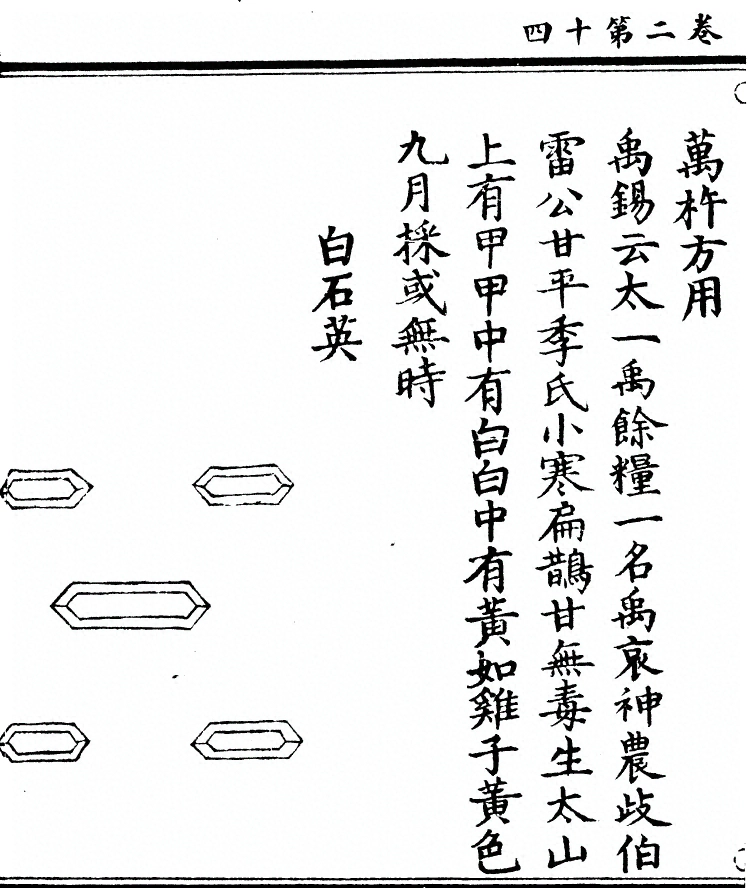 卷二第十四
萬杵方用
禹錫云太一禹餘糧一名禹哀神農歧伯
雷公甘平季氏小寒扁鵲甘無毒生太山
上有甲甲中有白白中有黃如雞子黃色
九月採或無時
白石英